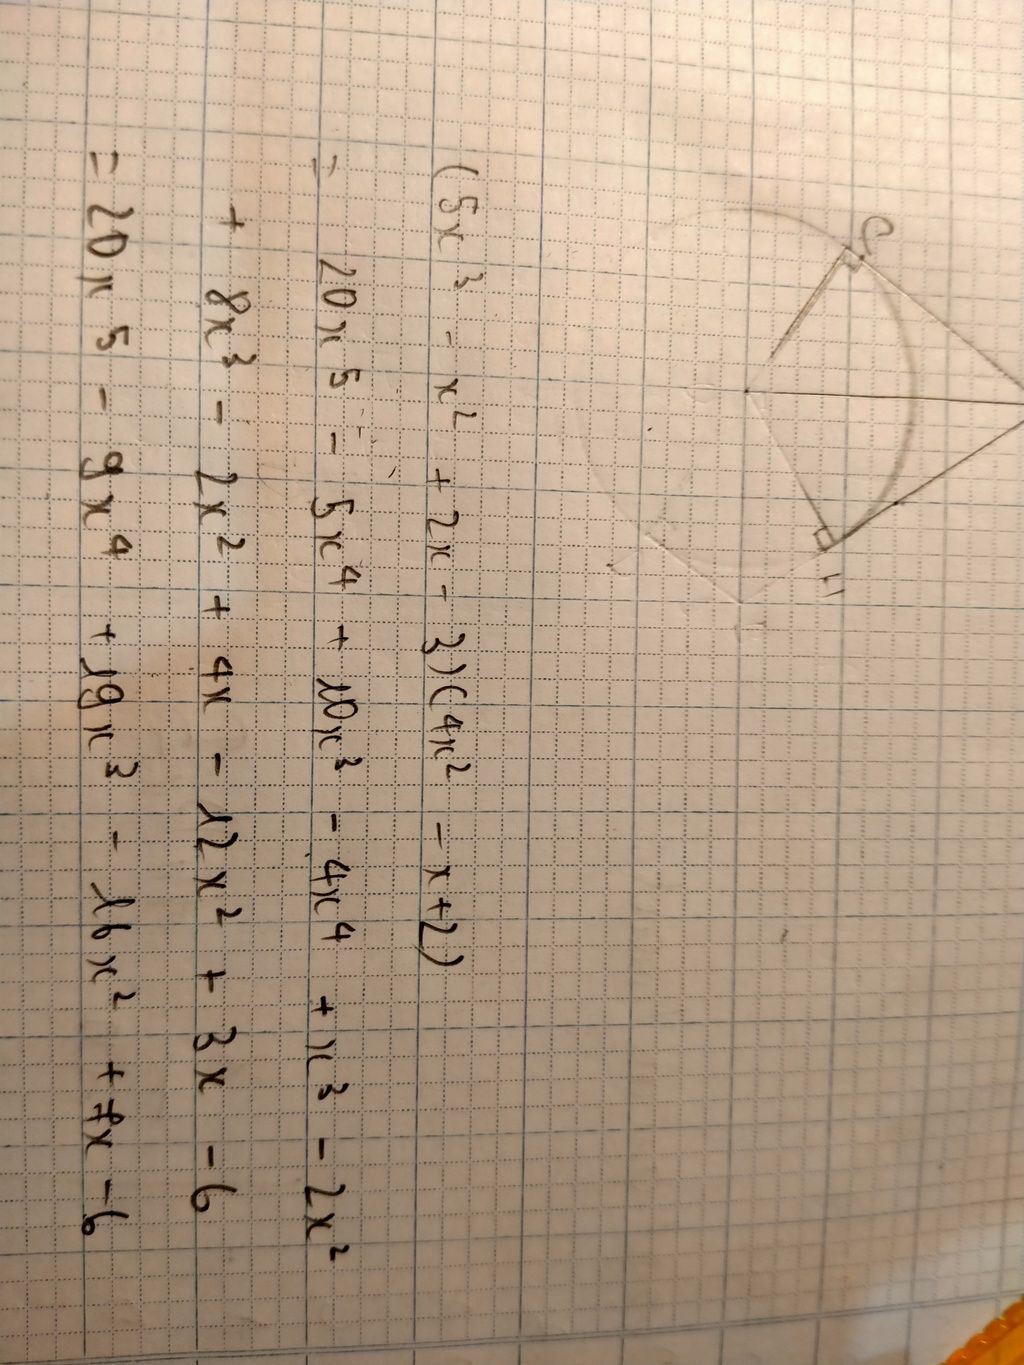 (5x³ - x² + 2x - 3)(4x² - x + 2)
= 20x⁵ - 5x⁴ + 10x³ - 4x⁴ + x³ - 2x²
+ 8x³ - 2x² + 4x - 12x² + 3x - 6
= 20x⁵ - 9x⁴ + 19x³ - 16x² + 7x - 6